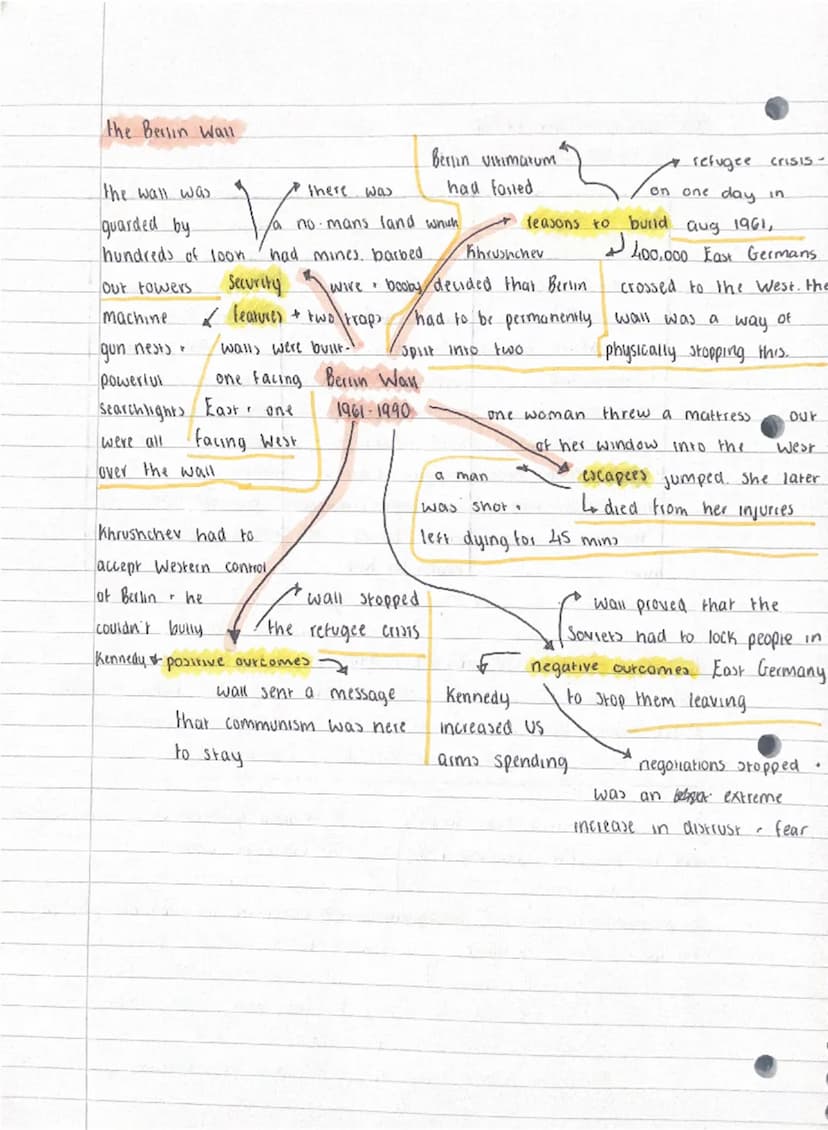 the Berlin Wall
the wall was
guarded by
hundreds of look
out towers
machine
gun nests +
powerful
searchlights
were all
over the wall
there was
a no-mans land which
had mines, barbed
wire + booby
traps
Security
features
+ two
walls were built -
one facing
East + one
facing West
Berlin Wall
1961-1990
reasons to build
Berlin Ultimatum
had failed
refugee crisis -
on one day in
aug 1961,
400,000 East Germans
crossed to the West. the
wall was a way of
physically stopping this.
Khrushchev
decided that Berlin
had to be permanently
split into two
escapees
one woman threw a mattress out
of her window into the West
jumped. she later
died from her injuries
a man
was shot +
left dying for 45 mins
positive outcomes
Khrushchev had to
accept Western control
of Berlin + he
couldn't bully
Kennedy
wall stopped
the refugee crisis
wall sent a message
that communism was here
to stay
negative outcomes
wall proved that the
Soviets had to lock people in
East Germany
to stop them leaving
Kennedy
increased US
arms spending
negotiations stopped +
was an extreme
increase in distrust + fear